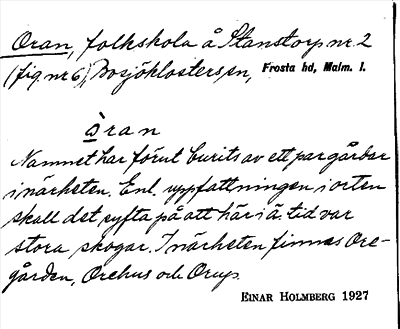 Oran, folkskola å Stanstorp nr. 2
(fig nr 6), Bosjöklosters sn, Frosta hd, Malm. l.
òran
Namnet har förut burits av ett par gårdar
i närheten. Enl. uppfattningen i orten
skall det syfta på att här i ä. tid var
stora skogar. I närheten finnas Ore-
gården, Orehus och Orup.
EINAR HOLMBERG 1927